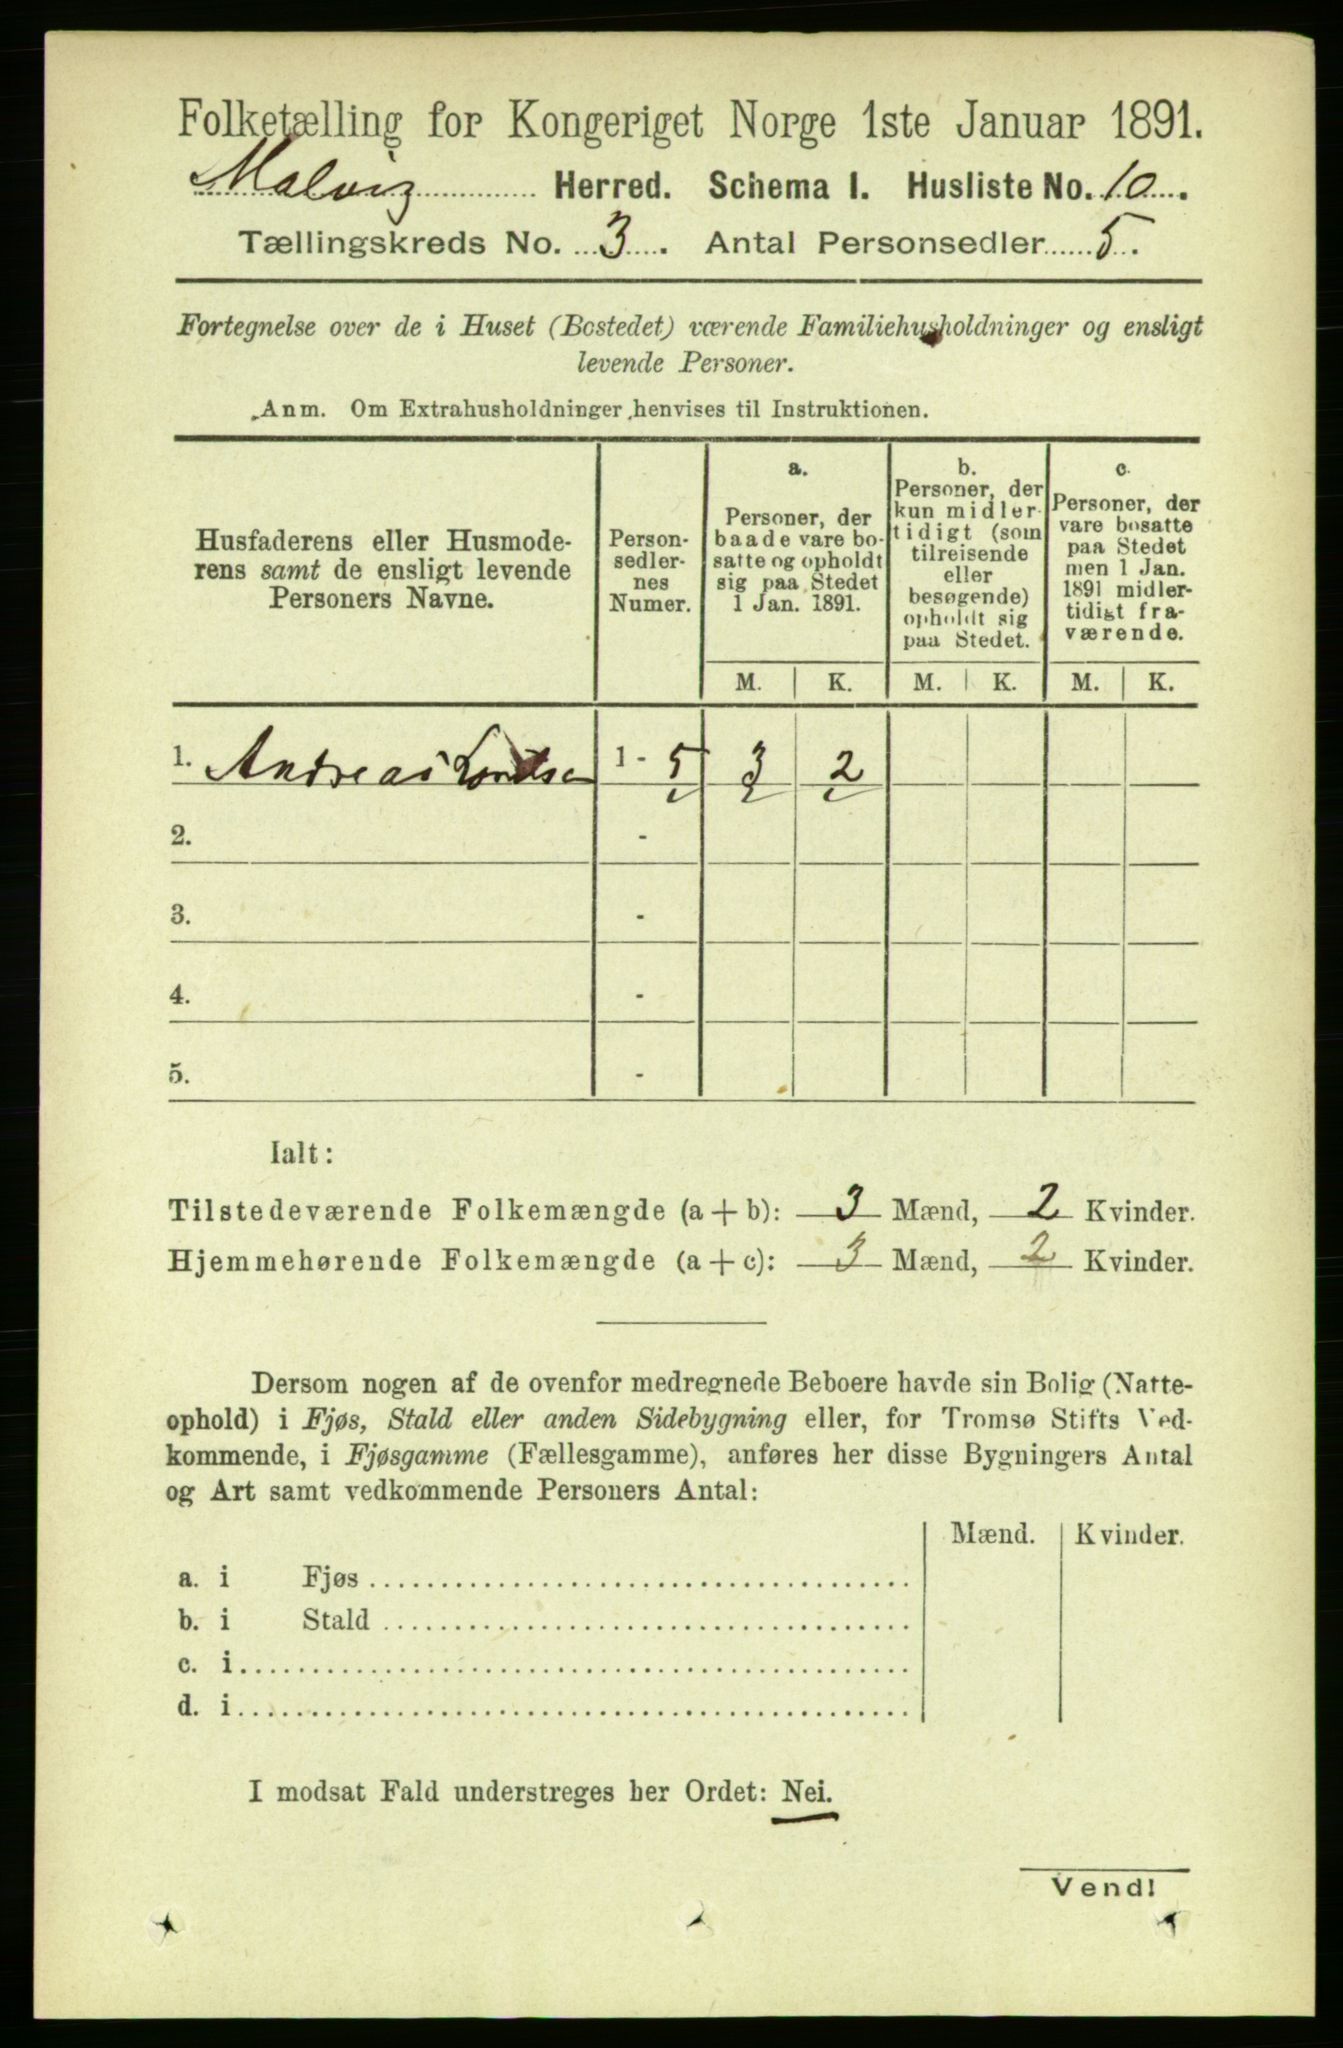 Folketælling for Kongeriget Norge 1ste Januar 1891.
Malvig Herred. Schema I. Husliste No. 10.
Tællingskreds No. 3. Antal Personsedler 5.
Fortegnelse over de i Huset (Bostedet) værende Familiehusholdninger og ensligt
levende Personer.
Anm. Om Extrahusholdninger henvises til Instruktionen.
Husfaderens eller Husmode-
rens samt de ensligt levende
Personers Navne.
Person-
sedler-
nes
Numer.
a.
Personer, der
baade vare bo-
satte og opholdt
sig paa Stedet
1 Jan. 1891.
b.
Personer, der
kun midler-
tidigt (som
tilreisende
eller
besøgende)
opholdt sig
paa Stedet.
c.
Personer, der
vare bosatte
paa Stedet
men 1 Jan.
1891 midler-
tidigt fra-
værende.
M. K. M. K. M. K.
1. Andreas 1 - 5 3 2
2. -
3. -
4. -
5. -
Ialt:
Tilstedeværende Folkemængde (a + b): 3 Mænd, 2 Kvinder.
Hjemmehørende Folkemængde (a + c): 3 Mænd, 2 Kvinder.
Dersom nogen af de ovenfor medregnede Beboere havde sin Bolig (Natte-
ophold) i Fjøs, Stald eller anden Sidebygning eller, for Tromsø Stifts Ved-
kommende, i Fjøsgamme (Fællesgamme), anføres her disse Bygningers Antal
og Art samt vedkommende Personers Antal:
Mænd. Kvinder.
a. i Fjøs
b. i Stald
c. i
d. i
I modsat Fald understreges her Ordet: Nei.
Vend!